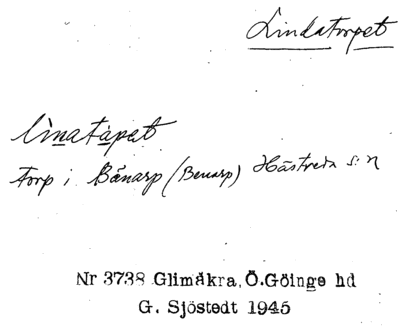 Lindatorpet
lìnatápet
torp i Bänarp (Benarp) Hästveda s:n
Nr 3738 Glimåkra, Ö.Göinge hd
G. Sjöstedt 1945